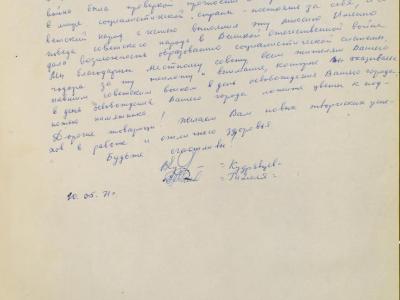 война была проверкой прочности
в мире социалистической страны постояла за себя, и со-
ветский народ с честью выполнил эту миссию. Именно
победа советского народа в Великой отечественной войне
дала возможность образованию социалистической системы.
Мы благодарны местному совету всем жителям Вашего
города за ту теплоту и внимание, которые Вы оказываете
нашим советским воинам в день освобождения Вашего города.
в день освобождения Вашего города ложите цветы к под-
ножию памятника!
Дорогие товарищи! Желаем Вам новых творческих успе-
хов в работе и отличного здоровья.
Будьте счастливы!
= Кудрявцев =
10.05.71г.